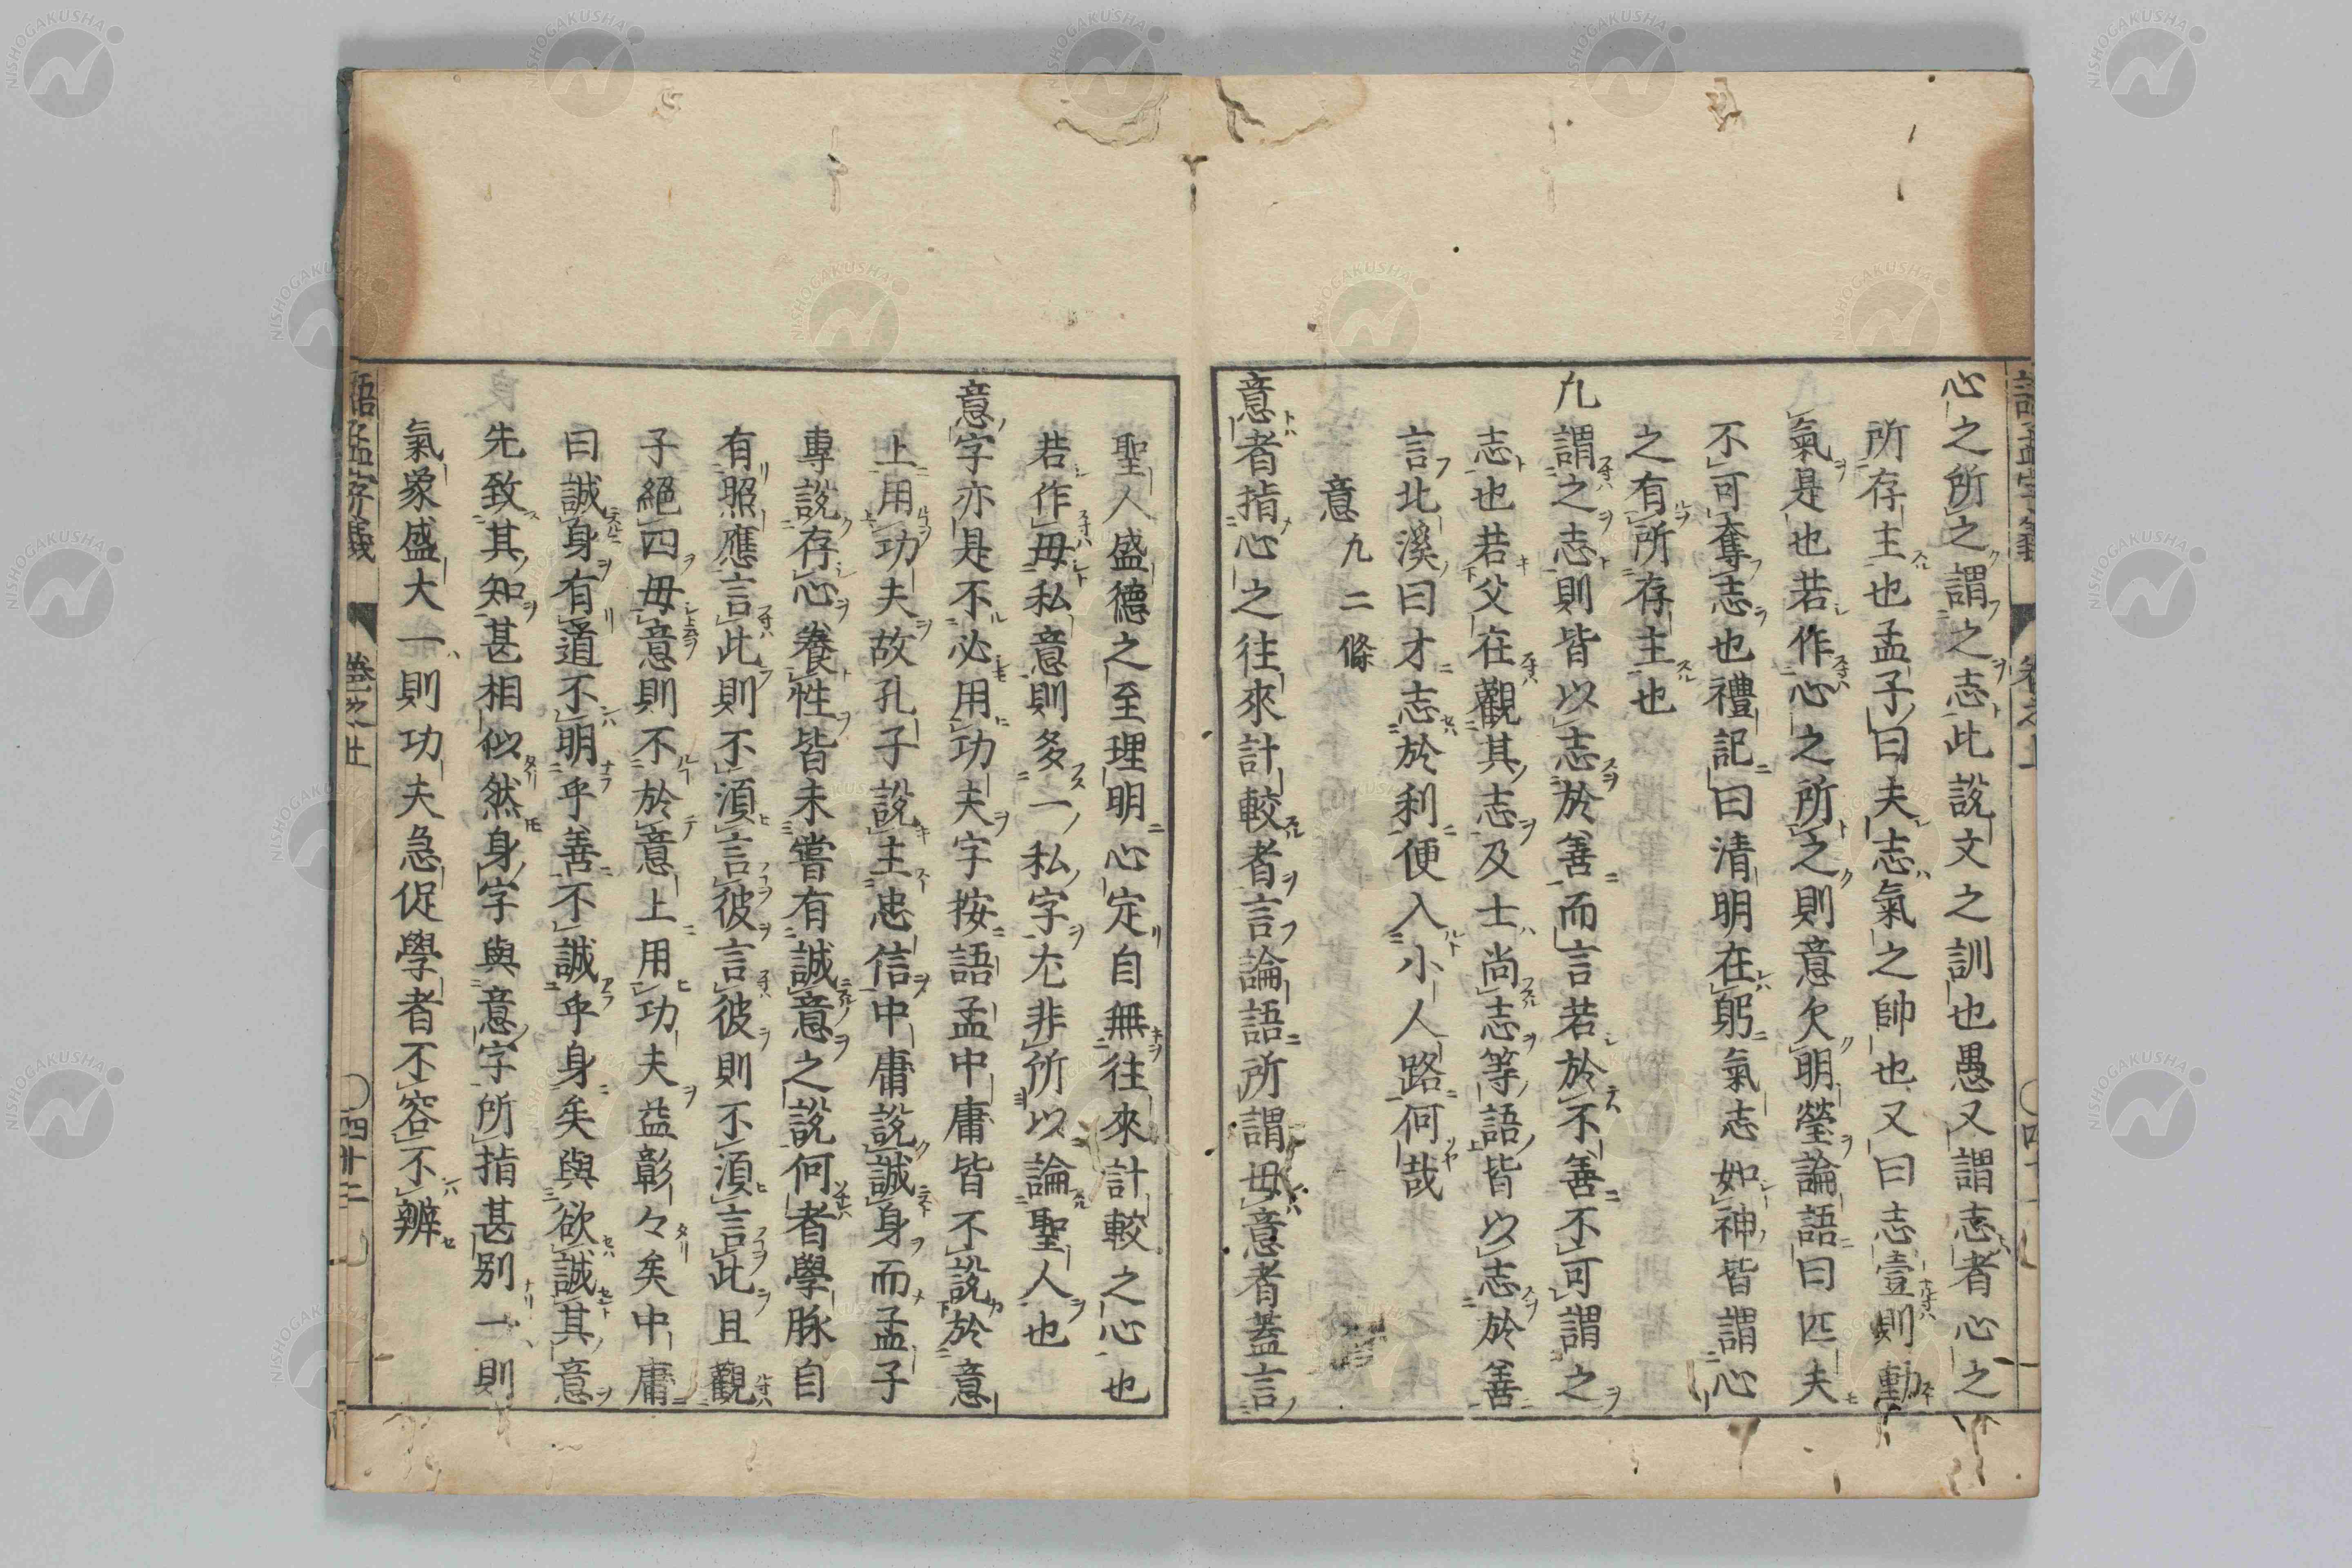 心之所之謂之志此說文之訓也愚又謂志者心之
所存主也孟子曰夫志氣之帥也又曰志壹則動
氣是也若作心之所之則意欠明瑩論語曰匹夫
不可奪志也禮記曰清明在躬氣志如神皆謂心
之有所存主也
凡謂之志則皆以志於善而言若於不善不可謂之
志也若父在觀其志及士尚志等語皆以志於善
言北溪曰才志於利便入小人路何哉
意 凡二條
意者指心之往來計較者言論語所謂毋意者蓋言
聖人盛德之至理明心定自無往來計較之心也
若作毋私意則多一私字尤非所以論聖人也
意字亦是不必用功夫字按語孟中庸皆不說於意
上用功夫故孔子說主忠信中庸說誠身而孟子
專說存心養性皆未嘗有誠意之說何者學脉自
有照應言此則不須言彼言彼則不須言此且觀
子絕四毋意則不於意上用功夫益彰々矣中庸
曰誠身有道不明乎善不誠乎身矣與欲誠其意
先致其知甚相似然身字與意字所指甚别一則
氣象盛大一則功夫急促學者不容不辨
語孟字義 卷之上 〇四十二
NISHOGAKUSHA